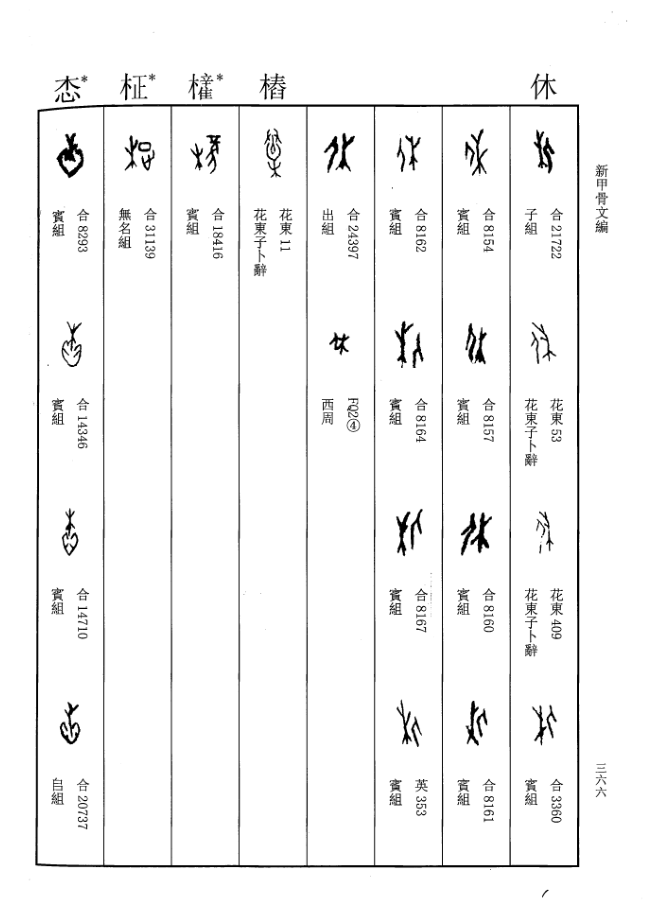 新甲骨文編
三六六
休
合 21722
子組
花東 53
花東子卜辭
花東 409
花東子卜辭
合 3360
賓組
合 8154
賓組
合 8157
賓組
合 8160
賓組
合 8161
賓組
合 8162
賓組
合 8164
賓組
合 8167
賓組
英 353
賓組
合 24397
出組
FQ2④
西周
樁
花東 11
花東子卜辭
合 18416
賓組
合 31139
無名組
合 8293
賓組
合 14346
賓組
合 14710
賓組
合 20737
𠂤組